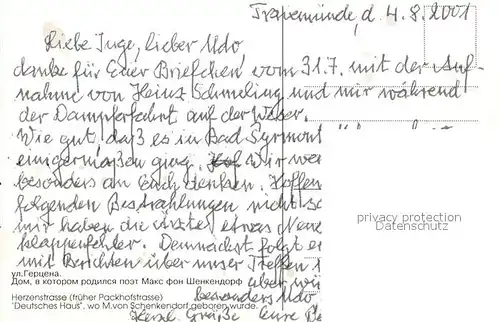 Travemünde, d. 4.8.2001
Liebe Inge, lieber Udo,
danke für Euer Briefchen vom 31.7. mit der Auf-
nahme von Heinz Schmeling und mir während
der Dampferfahrt auf der Weser.
Wie gut, daß es in Bad Pyrmont
einigermaßen ging. Wir wer
besonders an Euch denken. Hoffen
folgenden Bestrahlungen nicht so
mir haben die Ärzte etwas Neue
klappenfehler. Demnächst folgt e
mit Berichten über unser Treffen
über wü
besonders Udo
Herzl. Grüße Eure
privacy protection
Datenschutz
ул.Герцена.
Дом, в котором родился поэт Макс фон Шенкендорф
Herzenstrasse (früher Packhofstrasse)
"Deutsches Haus", wo M.von Schenkendorf geboren wurde.